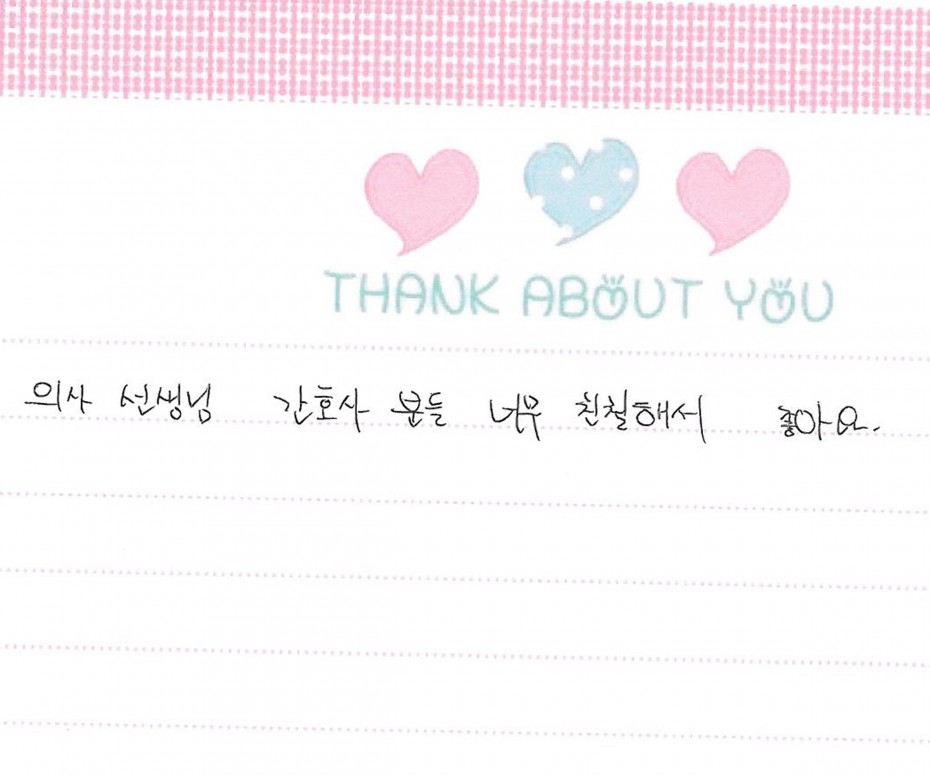 THANK ABOUT YOU
의사 선생님 간호사 분들 너무 친절해서 좋아요.